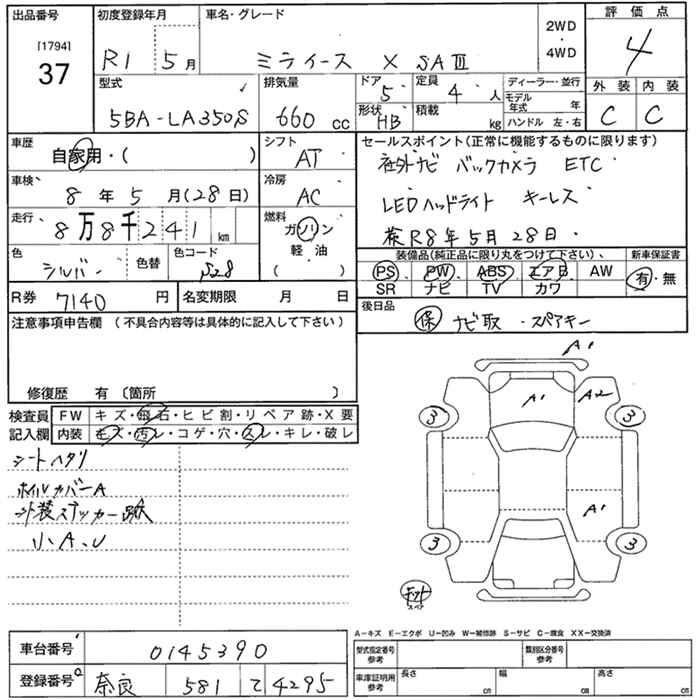 出品番号 初度登録年月 車名・グレード 2WD・4WD 評価点
[1794] 37 R1 5月 ミライース X SAⅢ 4
型式 排気量 ドア 5 定員 4人 ディーラー・並行 外装 内装
5BA-LA350S 660cc 形状 HB 積載 kg モデル年式 年 ハンドル 左・右 C C
車歴 シフト セールスポイント(正常に機能するものに限ります)
自家用・( ) AT 社外ナビ バックカメラ ETC
車検 冷房 LEDヘッドライト キーレス
8年5月(28日) AC
走行 8万8千241km 燃料 ガソリン 軽油 ( ) 検R8年5月28日
色 シルバー 色替 色コード S28 装備品(純正品に限り丸をつけて下さい) 新車保証書
PS PW ABS エアB AW 有・無
SR ナビ TV カワ
R券 7140円 名変期限 月 日 後日品
注意事項申告欄 (不具合内容等は具体的に記入して下さい) 保 ナビ取・スペアキー
修復歴 有 〔箇所 〕
検査員記入欄 FW キズ・飛石・ヒビ割・リペア跡・X要
内装 キズ・汚レ・コゲ・穴・スレ・キレ・破レ
A1
A1 A2
3 3
シートヘタリ
ホイルカバーA
外装ステッカー跡
小A、U
A1
3 3
キット スペア
A-キズ E-エクボ U-凹み W-補修跡 S-サビ C-腐食 XX-交換済
車台番号 0145390 型式指定番号 参考 類別区分番号 参考
登録番号 奈良 581 て 4295 車庫証明用 参考 長さ cm 幅 cm 高さ cm